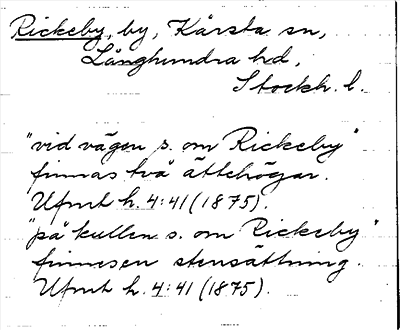 Rickeby, by, Kårsta sn,
Långhundra hd,
Stockh. l.
"vid vägen s. om Rickeby"
finnas två ättehögar.
Ufmt h. 4:41 (1875).
"på kullen s. om Rickeby"
finnes en stensättning.
Ufmt h. 4:41 (1875).